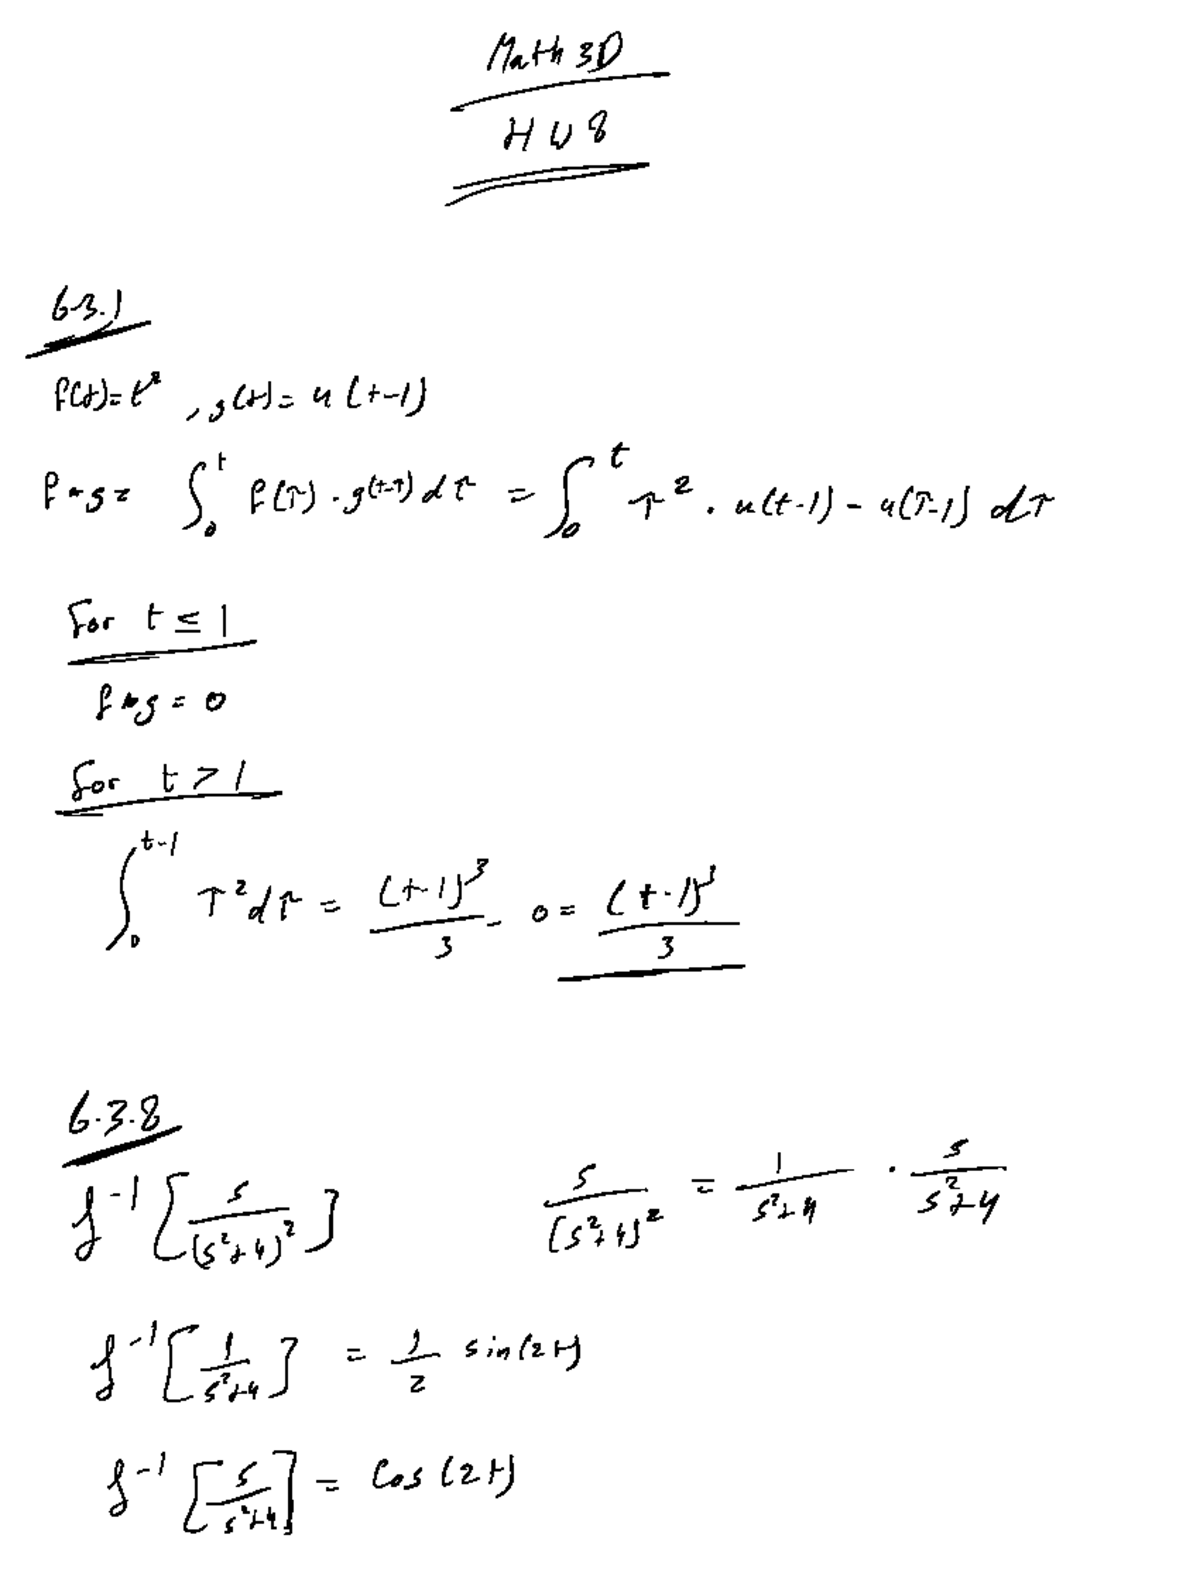 Math 3D
HW 8
6.3.1
f(t)=t², g(t)= u(t-1)
f*g= ∫₀ᵗ f(τ)·g(t-τ)dτ = ∫₀ᵗ τ²·u(t-1)-u(τ-1) dτ
for t ≤ 1
f*g=0
for t > 1
∫₀ᵗ⁻¹ τ²dτ = (t-1)³/3 - 0 = (t-1)³/3
6.3.8
ℒ⁻¹[s/(s²+4)²] s/(s²+4)² = 1/(s²+4) · s/(s²+4)
ℒ⁻¹[1/(s²+4)] = 1/2 sin(2t)
ℒ⁻¹[s/(s²+4)] = Cos(2t)